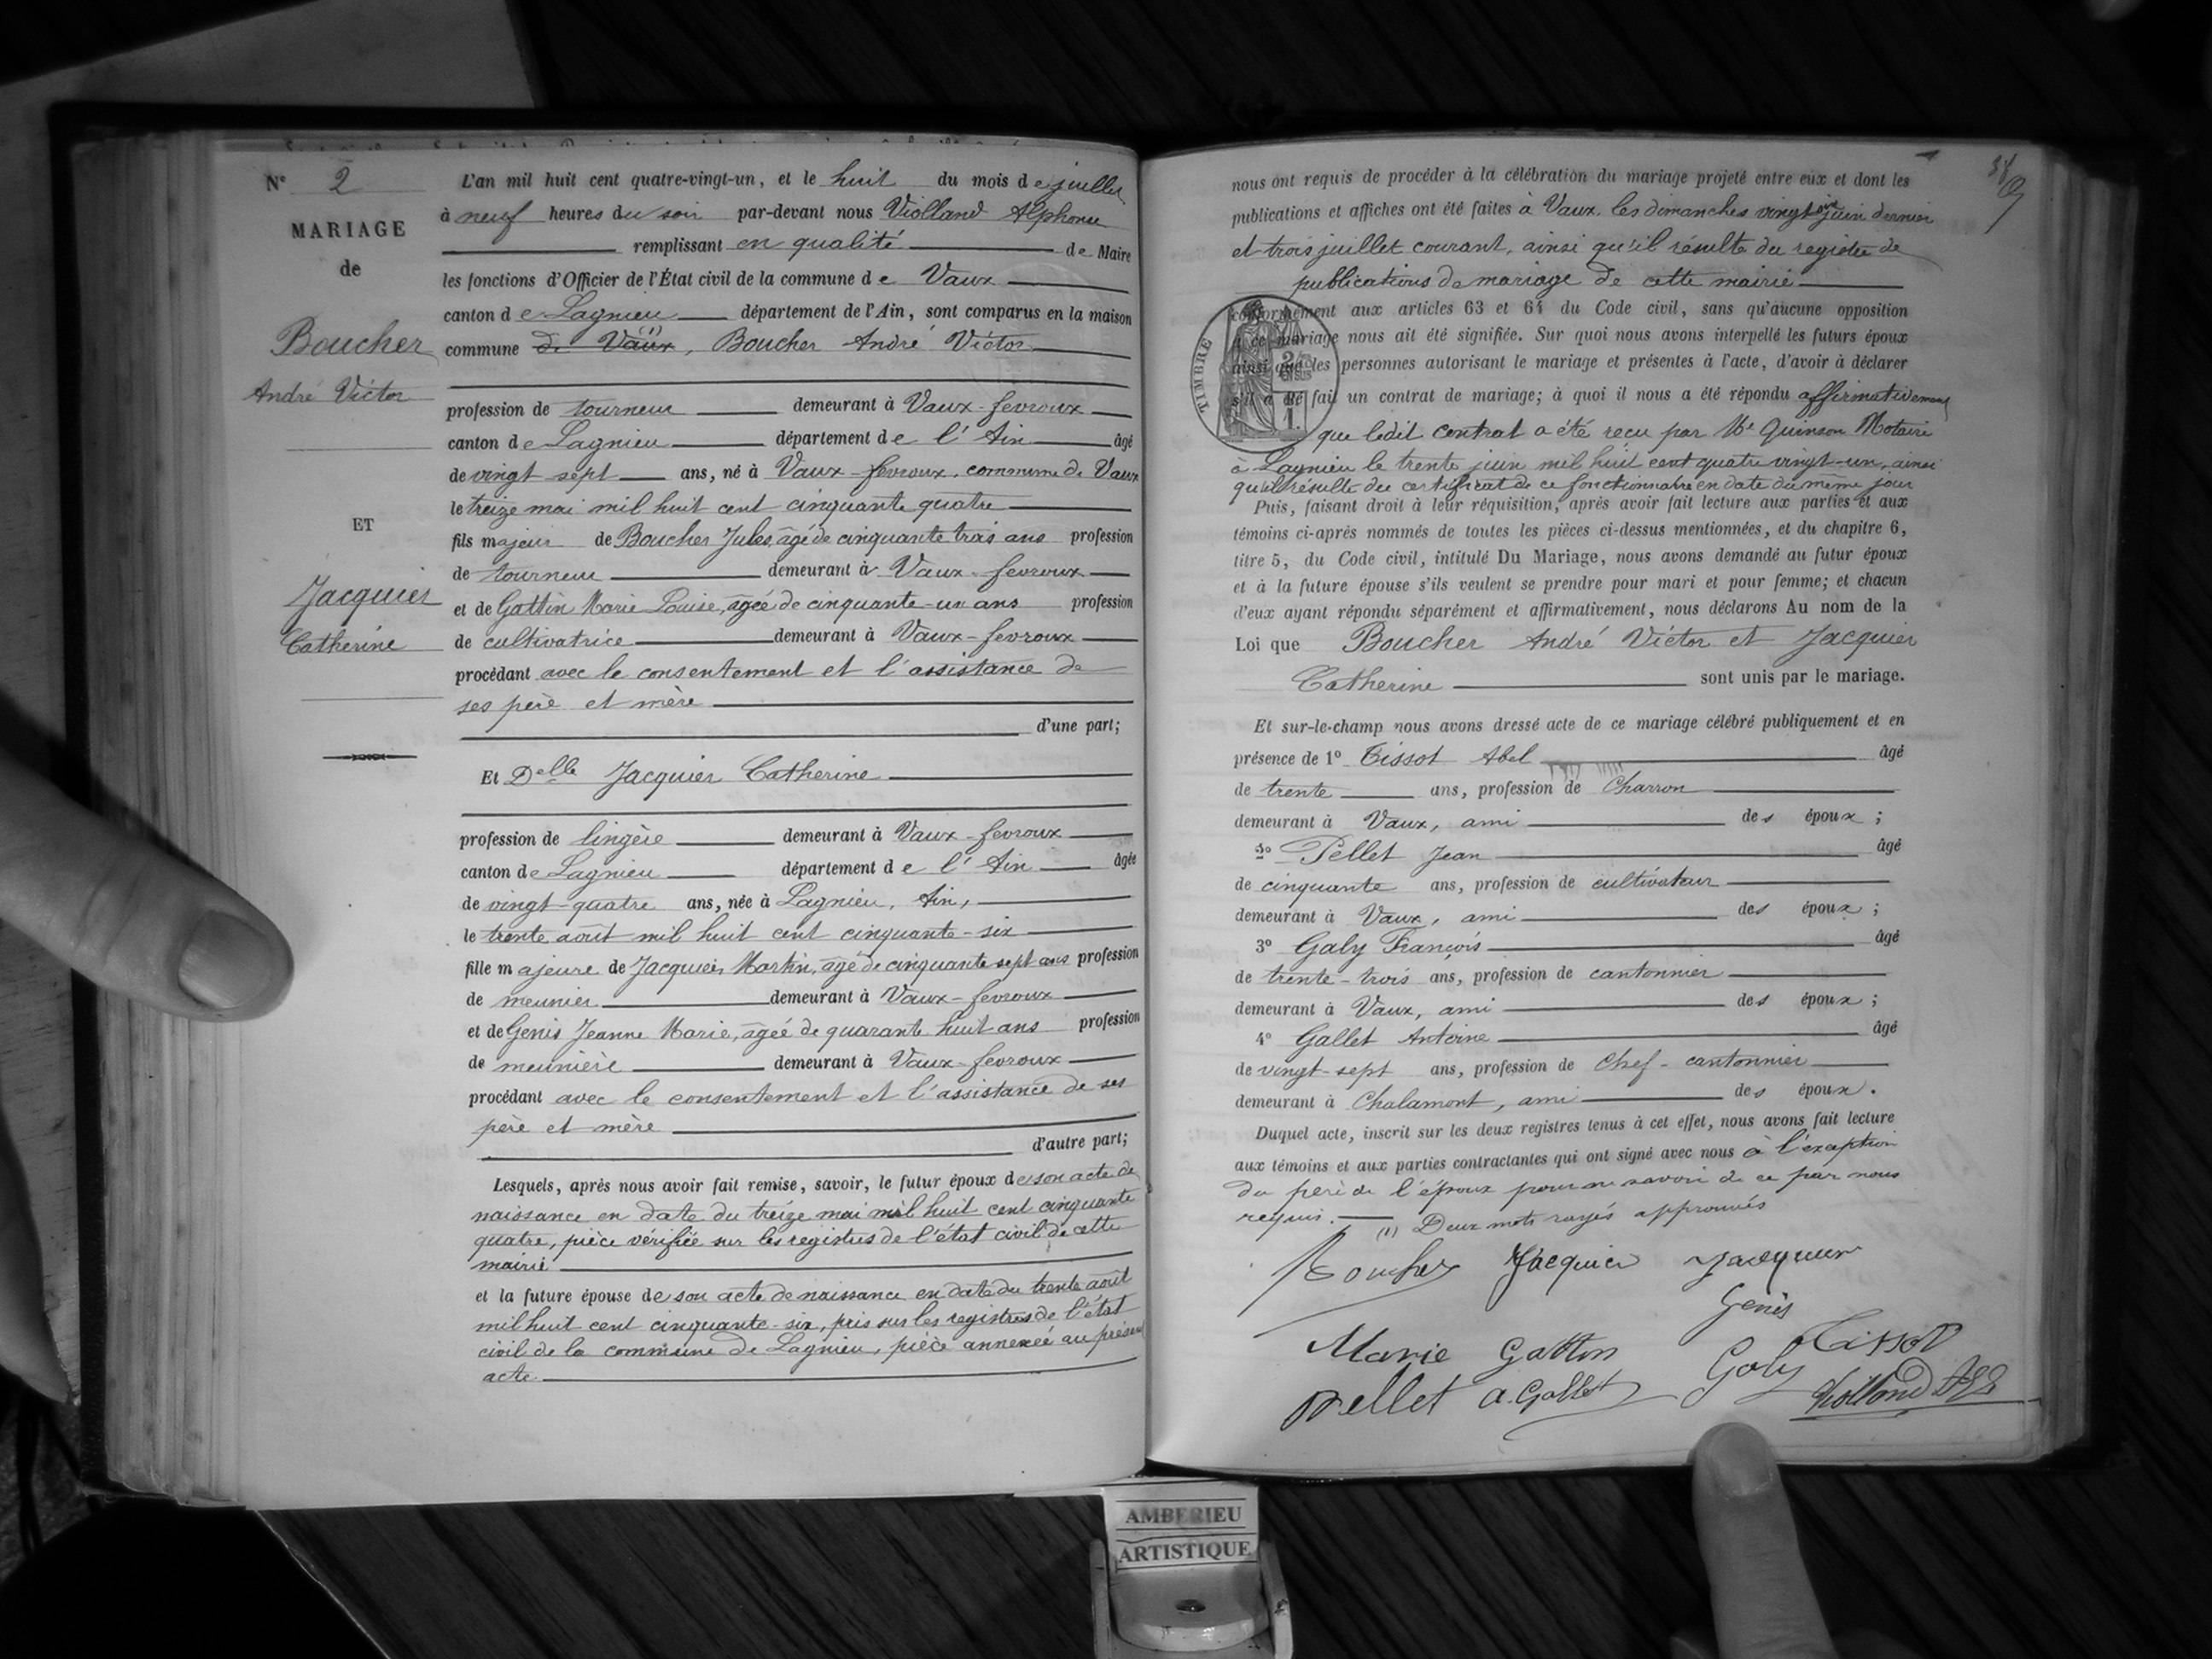 N° 2
MARIAGE
de
Boucher
André Victor
ET
Jacquier
Catherine
L'an mil huit cent quatre-vingt-un, et le huit du mois de juillet
à neuf heures du soir par-devant nous Violland Alphonse
remplissant en qualité de Maire
les fonctions d'Officier de l'État civil de la commune de Vaux
canton de Lagnieu département de l'Ain, sont comparus en la maison
commune de Vaux (1), Boucher André Victor
profession de tourneur demeurant à Vaux-fevroux
canton de Lagnieu département de l'Ain âgé
de vingt sept ans, né à Vaux-fevroux, commune de Vaux
le treize mai mil huit cent cinquante quatre
fils majeur de Boucher Jules, âgé de cinquante trois ans profession
de tourneur demeurant à Vaux-fevroux
et de Gattin Marie Louise, âgée de cinquante-un ans profession
de cultivatrice demeurant à Vaux-fevroux
procédant avec le consentement et l'assistance de
ses père et mère
d'une part;
Et Delle Jacquier Catherine
profession de lingère demeurant à Vaux-fevroux
canton de Lagnieu département de l'Ain âgée
de vingt-quatre ans, née à Lagnieu, Ain,
le trente août mil huit cent cinquante-six
fille majeure de Jacquier Martin, âgé de cinquante sept ans profession
de meunier demeurant à Vaux-fevroux
et de Genis Jeanne Marie, âgée de quarante huit ans profession
de meunière demeurant à Vaux-fevroux
procédant avec le consentement et l'assistance de ses
père et mère
d'autre part;
Lesquels, après nous avoir fait remise, savoir, le futur époux de son acte de
naissance en date du treize mai mil huit cent cinquante
quatre, pièce vérifiée sur les registres de l'état civil de cette
mairie
et la future épouse de son acte de naissance en date du trente août
mil huit cent cinquante-six, pris sur les registres de l'état
civil de la commune de Lagnieu, pièce annexée au présent
acte
nous ont requis de procéder à la célébration du mariage projeté entre eux et dont les
publications et affiches ont été faites à Vaux, les dimanches vingt six juin dernier
et trois juillet courant, ainsi qu'il résulte du registre de
publications de mariage de cette mairie
conformément aux articles 63 et 64 du Code civil, sans qu'aucune opposition
à ce mariage nous ait été signifiée. Sur quoi nous avons interpellé les futurs époux
ainsi que les personnes autorisant le mariage et présentes à l'acte, d'avoir à déclarer
s'il a été fait un contrat de mariage; à quoi il nous a été répondu affirmativement
TIMBRE
que ledit contrat a été reçu par Me Quinson Notaire
à Lagnieu le trente juin mil huit cent quatre vingt-un, ainsi
qu'il résulte du certificat de ce fonctionnaire en date du même jour
Puis, faisant droit à leur réquisition, après avoir fait lecture aux parties et aux
témoins ci-après nommés de toutes les pièces ci-dessus mentionnées, et du chapitre 6,
titre 5, du Code civil, intitulé Du Mariage, nous avons demandé au futur époux
et à la future épouse s'ils veulent se prendre pour mari et pour femme; et chacun
d'eux ayant répondu séparément et affirmativement, nous déclarons Au nom de la
Loi que Boucher André Victor et Jacquier
Catherine sont unis par le mariage.
Et sur-le-champ nous avons dressé acte de ce mariage célébré publiquement et en
présence de 1° Tissot Abel âgé
de trente ans, profession de Charron
demeurant à Vaux, ami des époux;
2° Pellet Jean âgé
de cinquante ans, profession de cultivateur
demeurant à Vaux, ami des époux;
3° Galy François âgé
de trente-trois ans, profession de cantonnier
demeurant à Vaux, ami des époux;
4° Gallet Antoine âgé
de vingt-sept ans, profession de Chef-cantonnier
demeurant à Chalamont, ami des époux.
Duquel acte, inscrit sur les deux registres tenus à cet effet, nous avons fait lecture
aux témoins et aux parties contractantes qui ont signé avec nous à l'exception
du père de l'époux pour ne savoir de ce par nous
requis. (1) Deux mots rayés approuvés
Boucher Jacquier Jacquier
Genis
Marie Gattin Tissot
Pellet A. Gallet Galy Violland
AMBERIEU
ARTISTIQUE